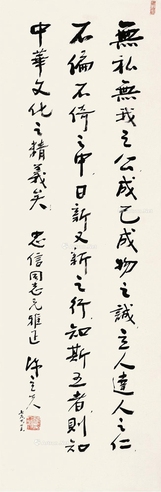 無私無我之公成己成物之誠立人達人之仁
不偏不倚之中日新又新之行知斯五者則知
中華文化之精義矣
忠信同志先雅正 陳立夫